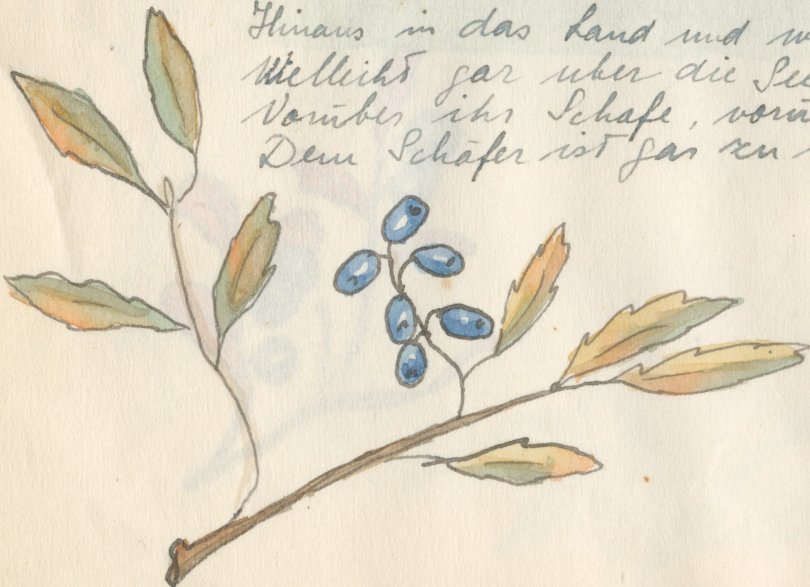 Hinaus in das Land und
Vielleicht gar uber die See
Vorüber ihr Schafe,
Dem Schäfer ist gar zu